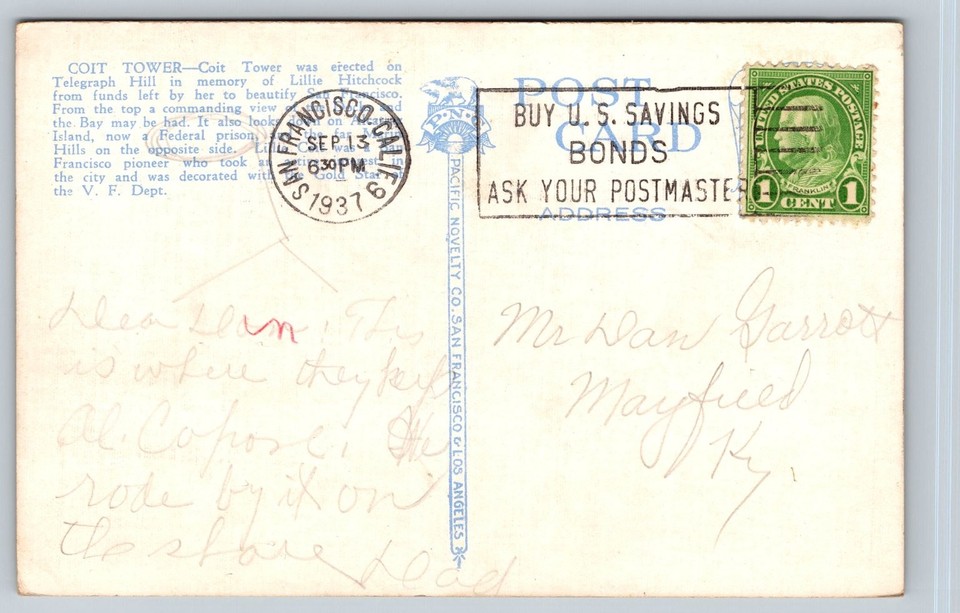 COIT TOWER—Coit Tower was erected on
Telegraph Hill in memory of Lillie Hitchcock
from funds left by her to beautify San Francisco.
From the top a commanding view of
the Bay may be had. It also looks on
Island, now a Federal prison, the far
Hills on the opposite side. San
Francisco pioneer who took an in
the city and was decorated with the Gold Star of
the V. F. Dept.
SAN FRANCISCO, CALIF. 9
SEP 13
6 30 PM
1937
POST
CARD
ADDRESS
BUY U. S. SAVINGS
BONDS
ASK YOUR POSTMASTER
UNITED STATES POSTAGE
FRANKLIN
1 CENT 1
P.N.C.
PACIFIC NOVELTY CO. SAN FRANCISCO & LOS ANGELES
Dear Dan: This
is where they kept
Al. Capose. We
rode by it on
the shore Dad
Mr Dan Garrott
Mayfield
Ky.